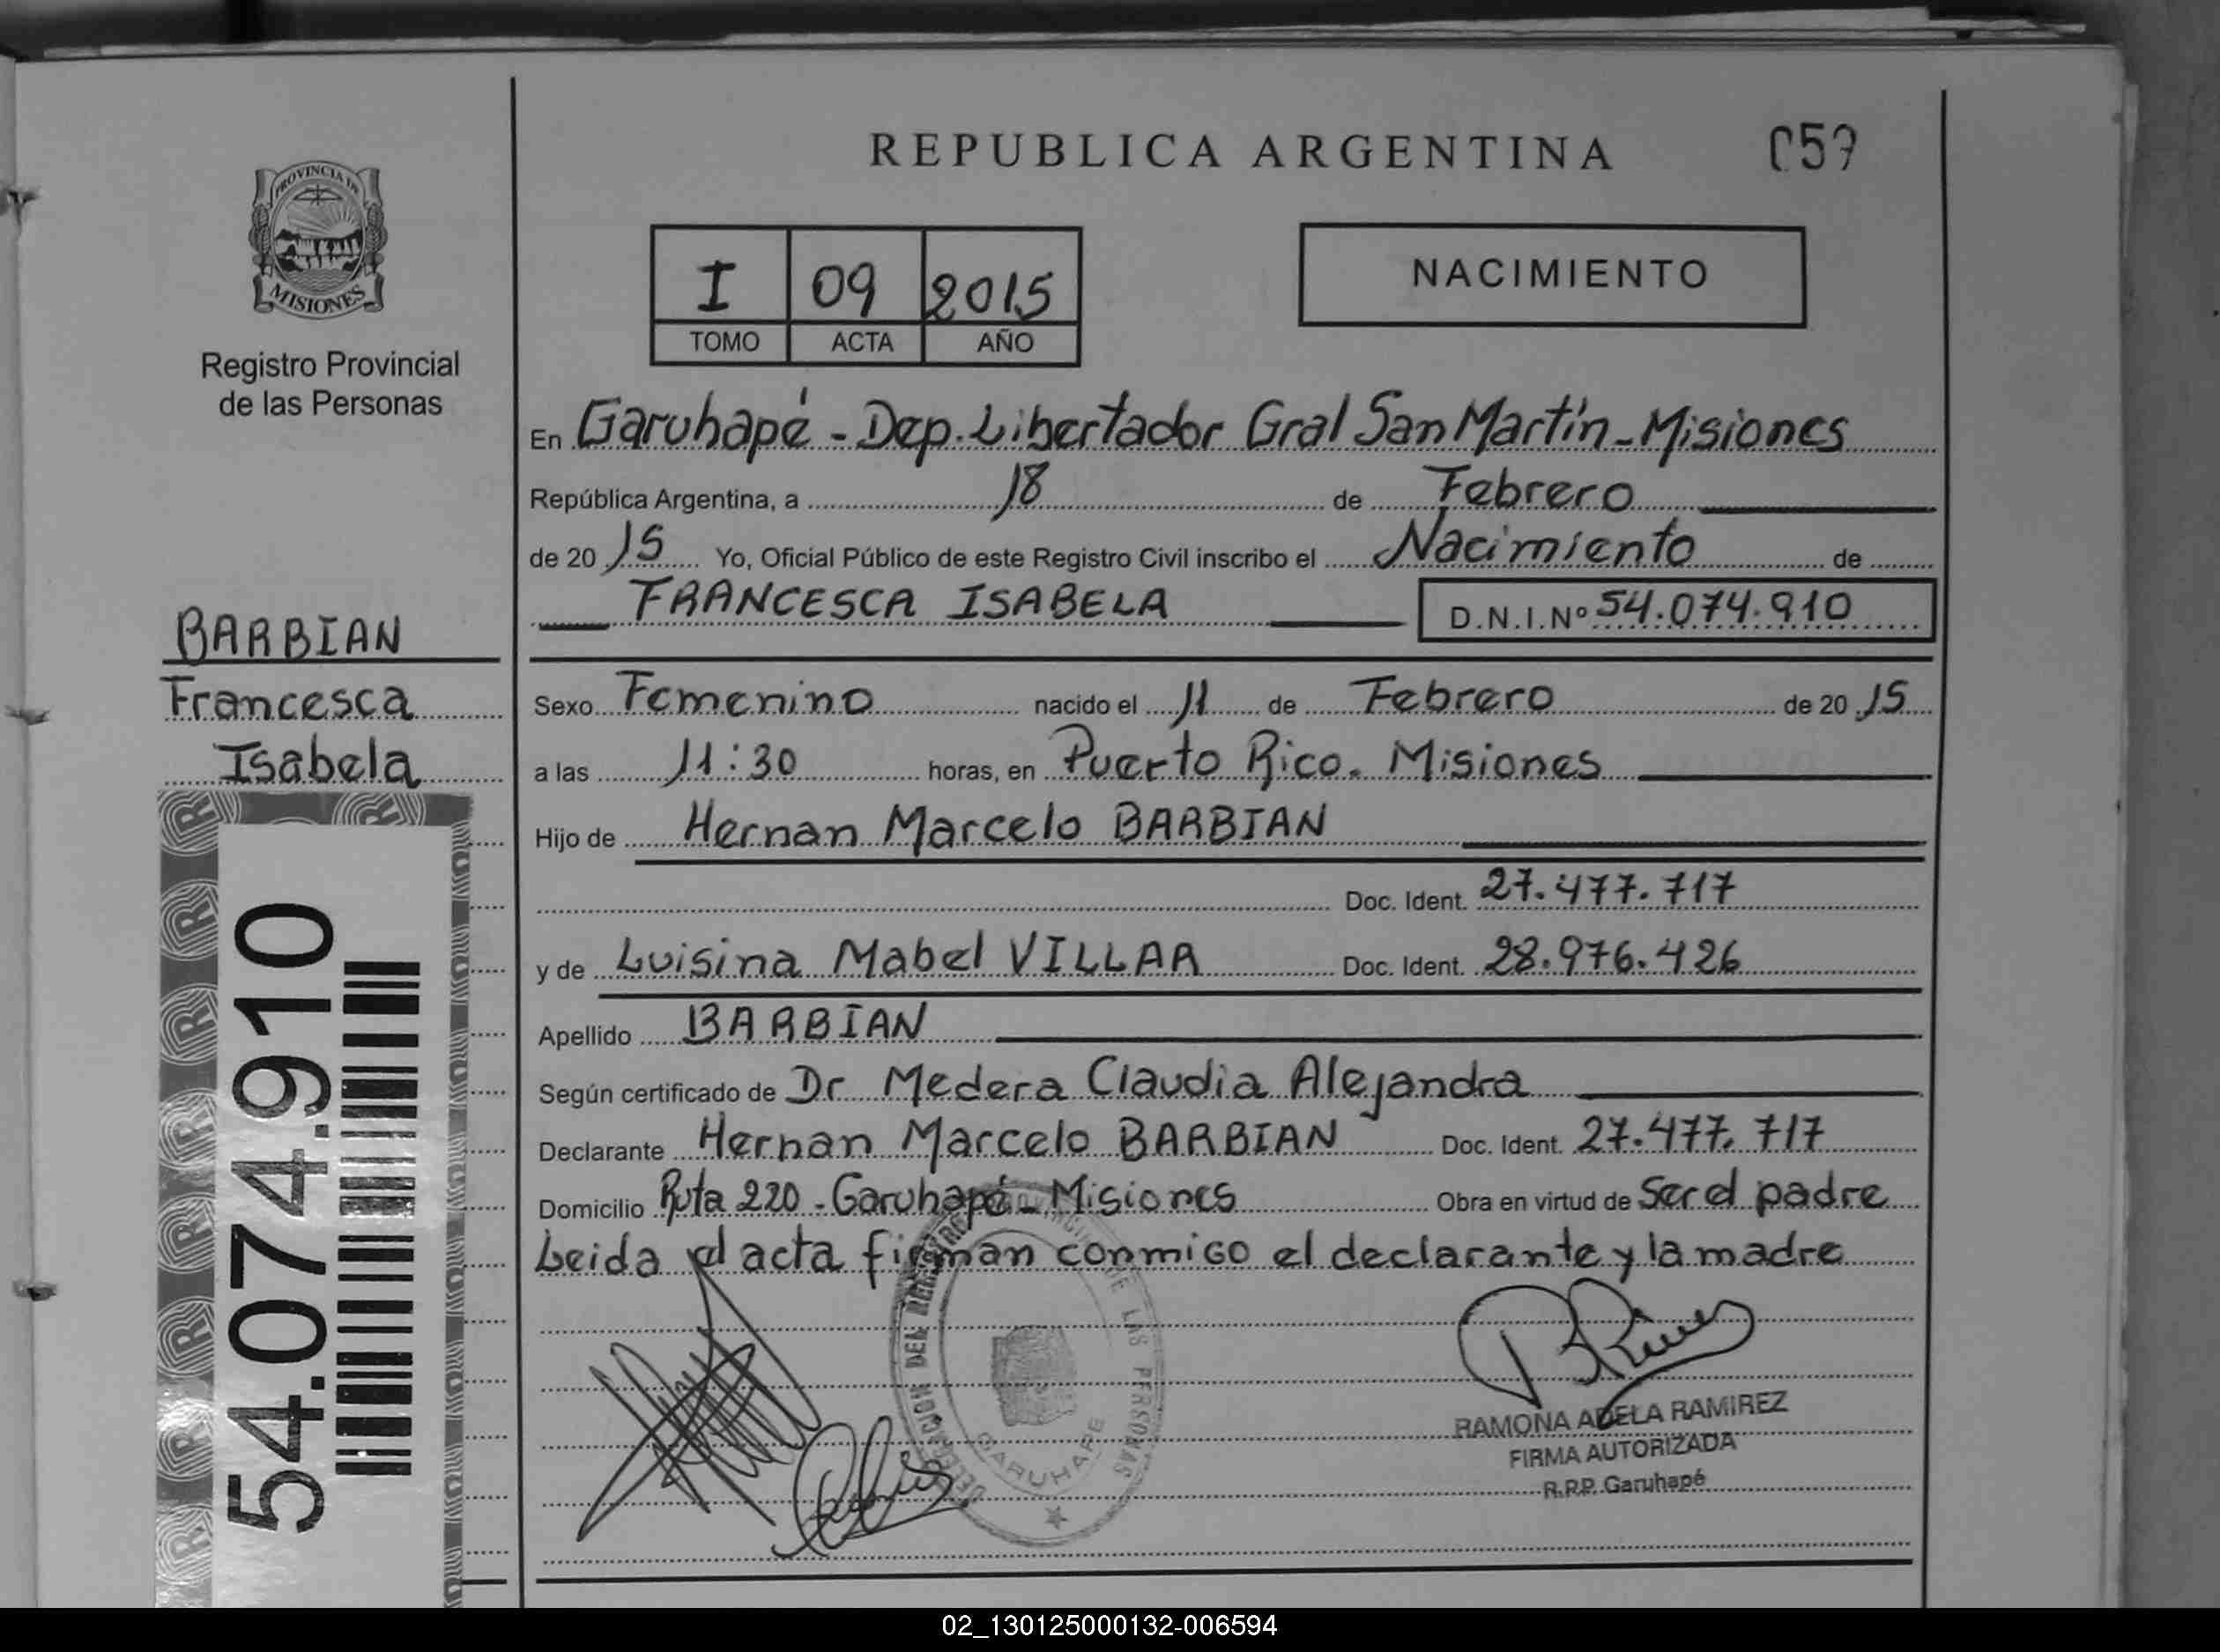 REPUBLICA ARGENTINA
059
PROVINCIA DE
MISIONES
Registro Provincial
de las Personas
I 09 2015
TOMO ACTA AÑO
NACIMIENTO
En Garuhapé - Dep. Libertador Gral San Martín - Misiones
República Argentina, a 18 de Febrero
de 20 15 Yo, Oficial Público de este Registro Civil inscribo el Nacimiento de
FRANCESCA ISABELA D.N.I.Nº 54.074.910
BARBIAN
Francesca
Isabela
54.074.910
Sexo Femenino nacido el 11 de Febrero de 20 15
a las 11:30 horas, en Puerto Rico. Misiones
Hijo de Hernan Marcelo BARBIAN
Doc. Ident. 27.477.717
y de Luisina Mabel VILLAR Doc. Ident. 28.976.426
Apellido BARBIAN
Según certificado de Dr Medera Claudia Alejandra
Declarante Hernan Marcelo BARBIAN Doc. Ident. 27.477.717
Domicilio Ruta 220 - Garuhapé - Misiones Obra en virtud de Ser el padre
Leida el acta firman conmigo el declarante y la madre
DELEGACION DEL REGISTRO PROVINCIAL DE LAS PERSONAS
GARUHAPE
RAMONA ADELA RAMIREZ
FIRMA AUTORIZADA
R.P.P. Garuhapé
02_130125000132-006594